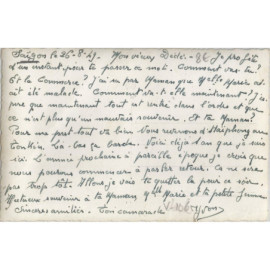 Saïgon le 26-8-49. Mon vieux Dédé. - Je profite
d'un instant pour te passer ce mot. Comment vas-tu ?
Et le Commerce ? J'ai su par Maman que Melle Marie avait
été malade. Comment va-t-elle maintenant ? J'es
père que maintenant tout est rentré dans l'ordre et que
ce n'est plus qu'un mauvais souvenir. Et ta Maman ?
Pour ma part tout va bien. Nous revenons d'Haïphong au
Tonkin. Là-bas ça barde. Voici déjà l'an que je suis
ici. L'année prochaine à pareille époque je crois que
nous pourrons commencer à parler retour. Ce ne sera
pas trop tôt. Allons je vais te quitter là pour ce soir.
souvenir à ta Maman Melle Marie et ta petite femme
Sincères amitiés. Ton camarade